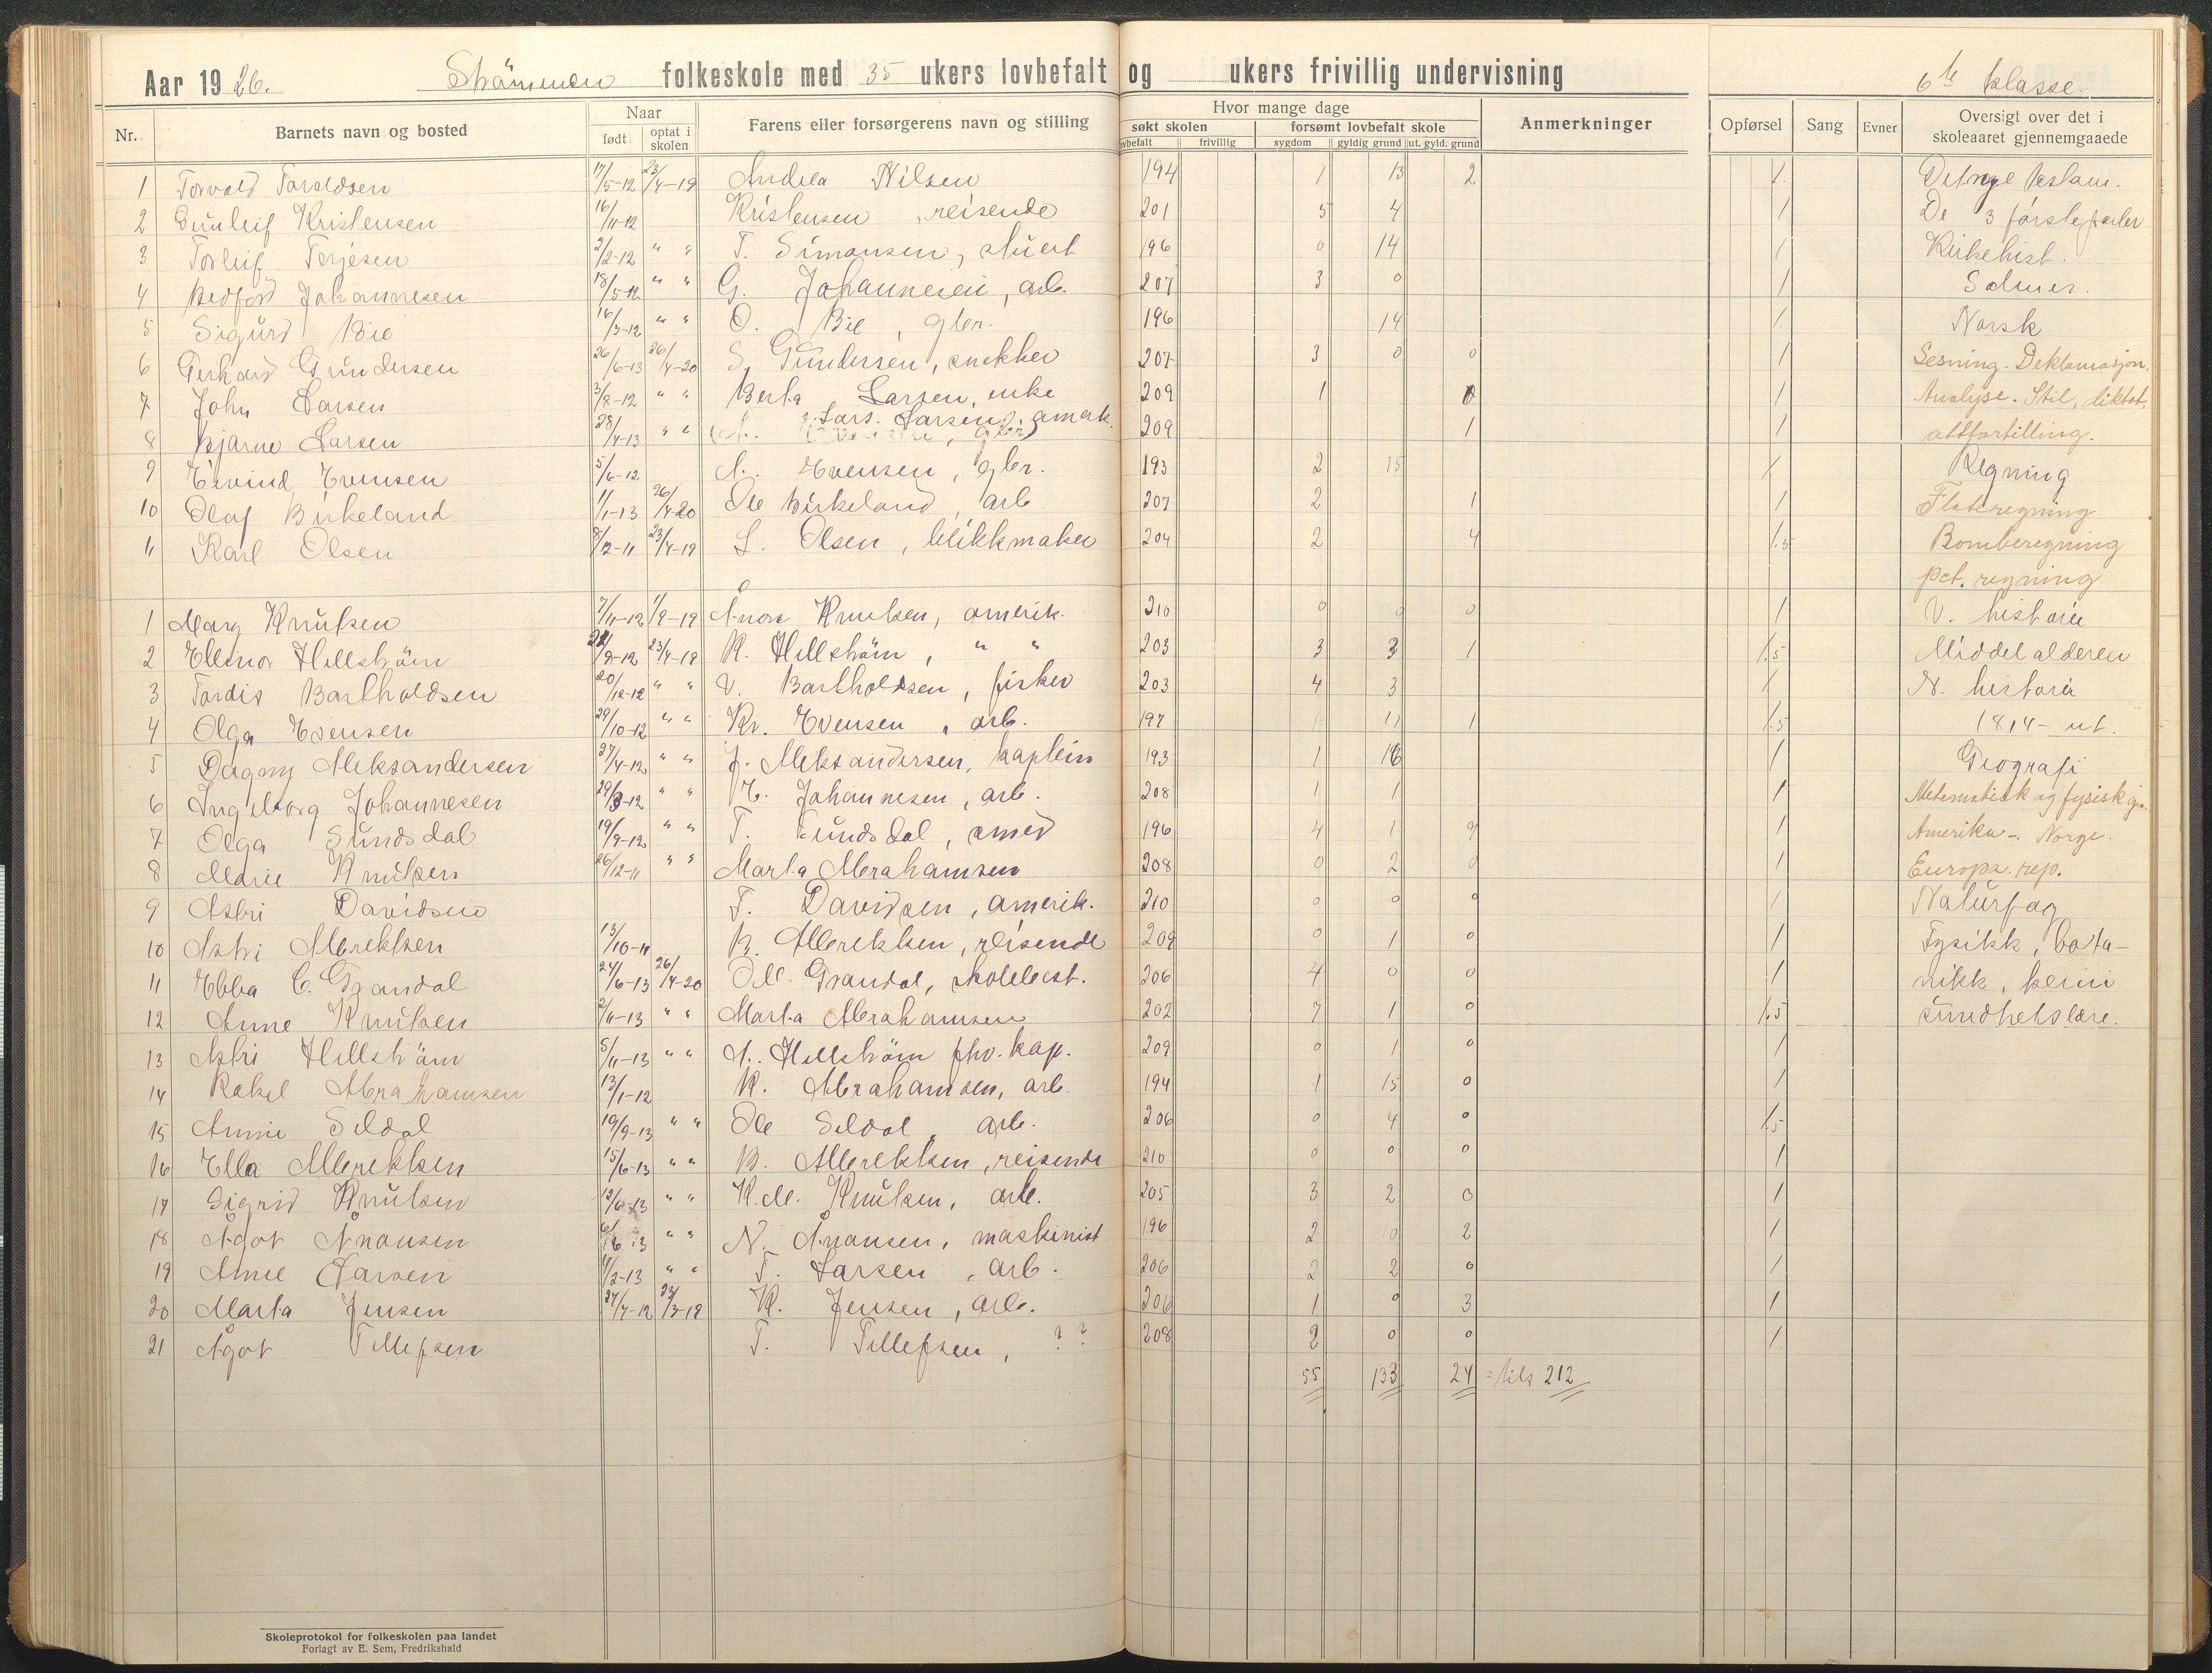 Aar 1926. Strömmen folkeskole med 35 ukers lovbefalt og ukers frivillig undervisning 6te klasse.
Nr. Barnets navn og bosted Naar født optat i skolen Farens eller forsørgerens navn og stilling Hvor mange dage søkt skolen lovbefalt frivillig forsømt lovbefalt skole sygdom gyldig grund ut. gyld. grund Anmerkninger Opførsel Sang Evner Oversigt over det i skoleaaret gjennemgaaede
1 Torvald Taraldsen 17/5-12 23/4-19 Andrea Nilsen 194 1 13 2 1. Det nye testam.
2 Gunleif Kristensen 16/11-12 Kristensen, reisende 201 5 4 1 De 3 förste parter
3 Torleif Terjesen 2/2-12 " " T. Simonsen, stuert 196 0 14 1 Kirkehist.
4 Bedford Johannesen 18/5-12 " " G. Johannesen, arb. 207 3 0 1 Salmer.
5 Sigurd Bie 16/3-12 " " O. Bie, gbr. 196 14 1 Norsk
6 Gerhard Gundersen 26/6-13 26/4-20 S. Gundersen, snekker 207 3 0 0 1 Lesning. Deklamasjon.
7 John Larsen 3/8-12 " " Berta Larsen, enke 209 1 0 1 Analyse. Stil, diktat,
8 Bjarne Larsen 28/4-13 " " Lars Larsen, amerk. 209 1 1 attfortelling.
9 Eivind Evensen 5/6-12 A. Evensen, gbr. 193 2 15 1 Regning
10 Olaf Birkeland 1/1-13 26/4-20 Ole Birkeland, arb. 207 2 1 1 Flateregning
11 Karl Olsen 8/2-11 23/4-19 L. Olsen, blikkmaker 204 2 4 1.5 Romberegning
pct. regning
1 Mary Knutsen 7/11-12 1/9-19 Anors Knutsen, amerik. 210 0 0 0 1 V. historie
2 Ellinor Hellström 21/9-12 23/4-19 K. Hellström, " " 203 3 3 1 1.5 Middelalderen
3 Tordis Bartholdsen 20/12-12 " " V. Bartholdsen, fisker 203 4 3 1 N. historie
4 Olga Evensen 29/10-12 " " Kr. Evensen, arb. 197 1 11 1 1.5 1814 - ut.
5 Dagny Aleksandersen 27/4-12 " " J. Aleksandersen, kaptein 193 1 16 1 Geografi
6 Ingeborg Johannesen 29/3-12 " " E. Johannesen, arb. 208 1 1 1 Matematisk og fysisk g.
7 Olga Sundsdal 19/9-12 " " T. Sundsdal, smed 196 4 1 9 1 Amerika -. Norge.
8 Marie Knutsen 26/12-11 " " Marta Abrahamsen 208 0 2 0 1 Europa. rep.
9 Astri Davidsen T. Davidsen, amerik. 210 0 0 0 1 Naturfag
10 Astri Albrektsen 13/10-11 B. Albrektsen, reisende 209 0 1 0 1 Fysikk, bota-
11 Ebba C. Grandal 24/6-13 26/4-20 Ole Grandal, skolebest. 206 4 0 0 1 nikk, kemi
12 Anne Knutsen 2/11-13 " " Marta Abrahamsen 202 7 1 0 1.5 sundhetslære.
13 Astri Hellström 5/11-13 " " A. Hellström fhv. kap. 209 0 1 0 1
14 Rakel Abrahamsen 13/1-12 K. Abrahamsen, arb. 194 1 15 0 1
15 Annie Seldal 10/9-13 " " Ole Seldal, arb. 206 0 4 0 1.5
16 Ella Albrektsen 15/6-13 " " B. Albrektsen, reisende 210 0 0 0 1
17 Sigrid Knutsen 12/6-13 " " K. M. Knutsen, arb. 205 3 2 0 1
18 Ågot Ånonsen 6/6-13 " " N. Ånonsen, maskinist 196 2 10 2 1
19 Anne Larsen 4/2-13 " " T. Larsen, arb. 206 2 2 0 1
20 Marta Jensen 27/7-12 23/3-19 K. Jensen, arb. 206 1 0 3 1
21 Ågot Tellefsen T. Tellefsen, ? ? 208 2 0 0 1
55 133 24 = tils 212
Skoleprotokol for folkeskolen paa landet
Forlagt av E. Sem, Fredrikshald